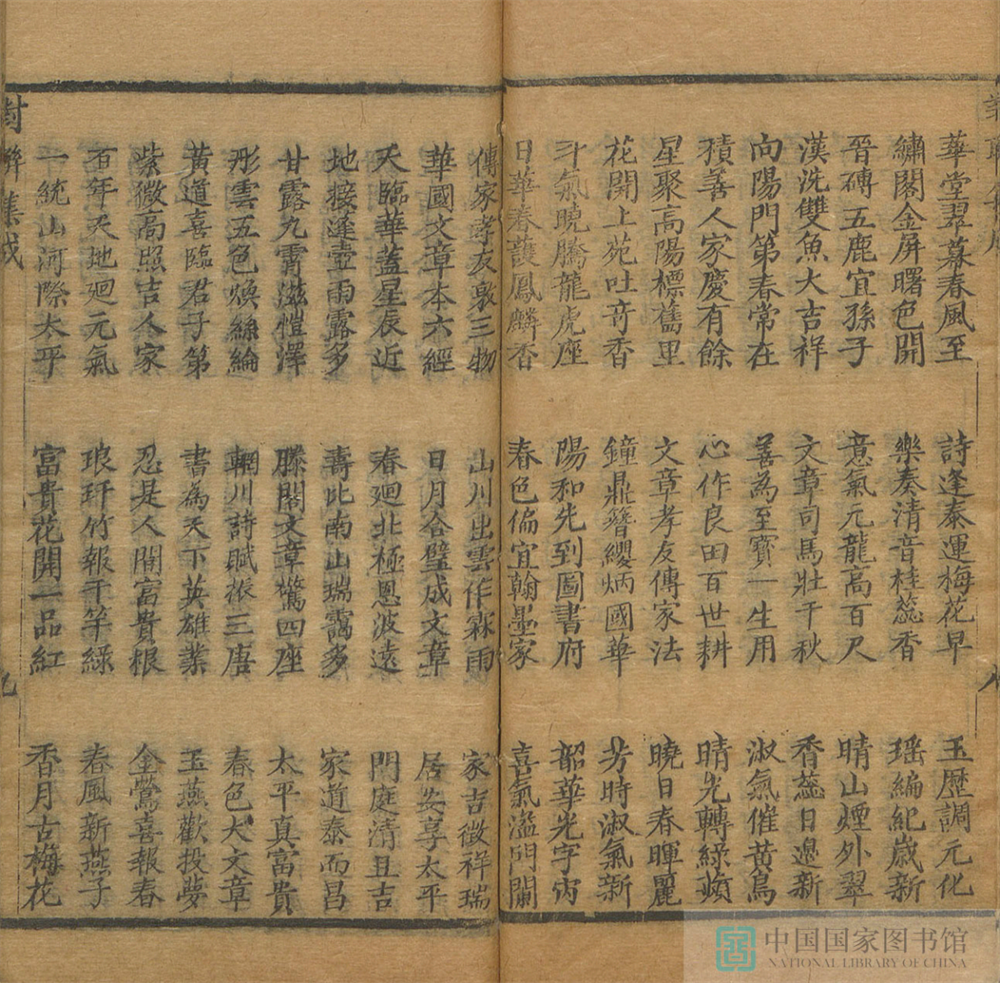 華堂翠幕春風至
繡閣金屏曙色開
晉磚五鹿宜孫子
漢洗雙魚大吉祥
向陽門第春常在
積善人家慶有餘
星聚高陽標舊里
花開上苑吐奇香
斗氣曉騰龍虎座
日華春護鳳麟香
詩逢泰運梅花早
樂奏清音桂蕊香
意氣元龍高百尺
文章司馬壯千秋
善為至寶一生用
心作良田百世耕
文章孝友傳家法
鐘鼎簪纓炳國華
陽和先到圖書府
春色偏宜翰墨家
玉歷調元化
瑤編紀歲新
晴山煙外翠
香蕊日邊新
淑氣催黃鳥
晴光轉綠蘋
曉日春暉麗
芳時淑氣新
韶華光宇宙
喜氣溢門闌
傳家孝友敦三物
華國文章本六經
天臨華蓋星辰近
地接蓬壺雨露多
甘露九霄滋愷澤
彤雲五色煥絲綸
黃道喜臨君子第
紫微高照吉人家
百年天地廻元氣
一統山河際太平
山川出雲作霖雨
日月合璧成文章
春廻北極恩波遠
壽比南山瑞靄多
滕閣文章驚四座
輞川詩賦振三唐
書為天下英雄業
忍是人間富貴根
琅玕竹報千竿綠
富貴花開一品紅
家吉徵祥瑞
居安享太平
門庭清且吉
家道泰而昌
太平真富貴
春色大文章
玉燕歡投夢
金鶯喜報春
春風新燕子
香月古梅花
對聯集成
九
中国国家图书馆
NATIONAL LIBRARY OF CHINA